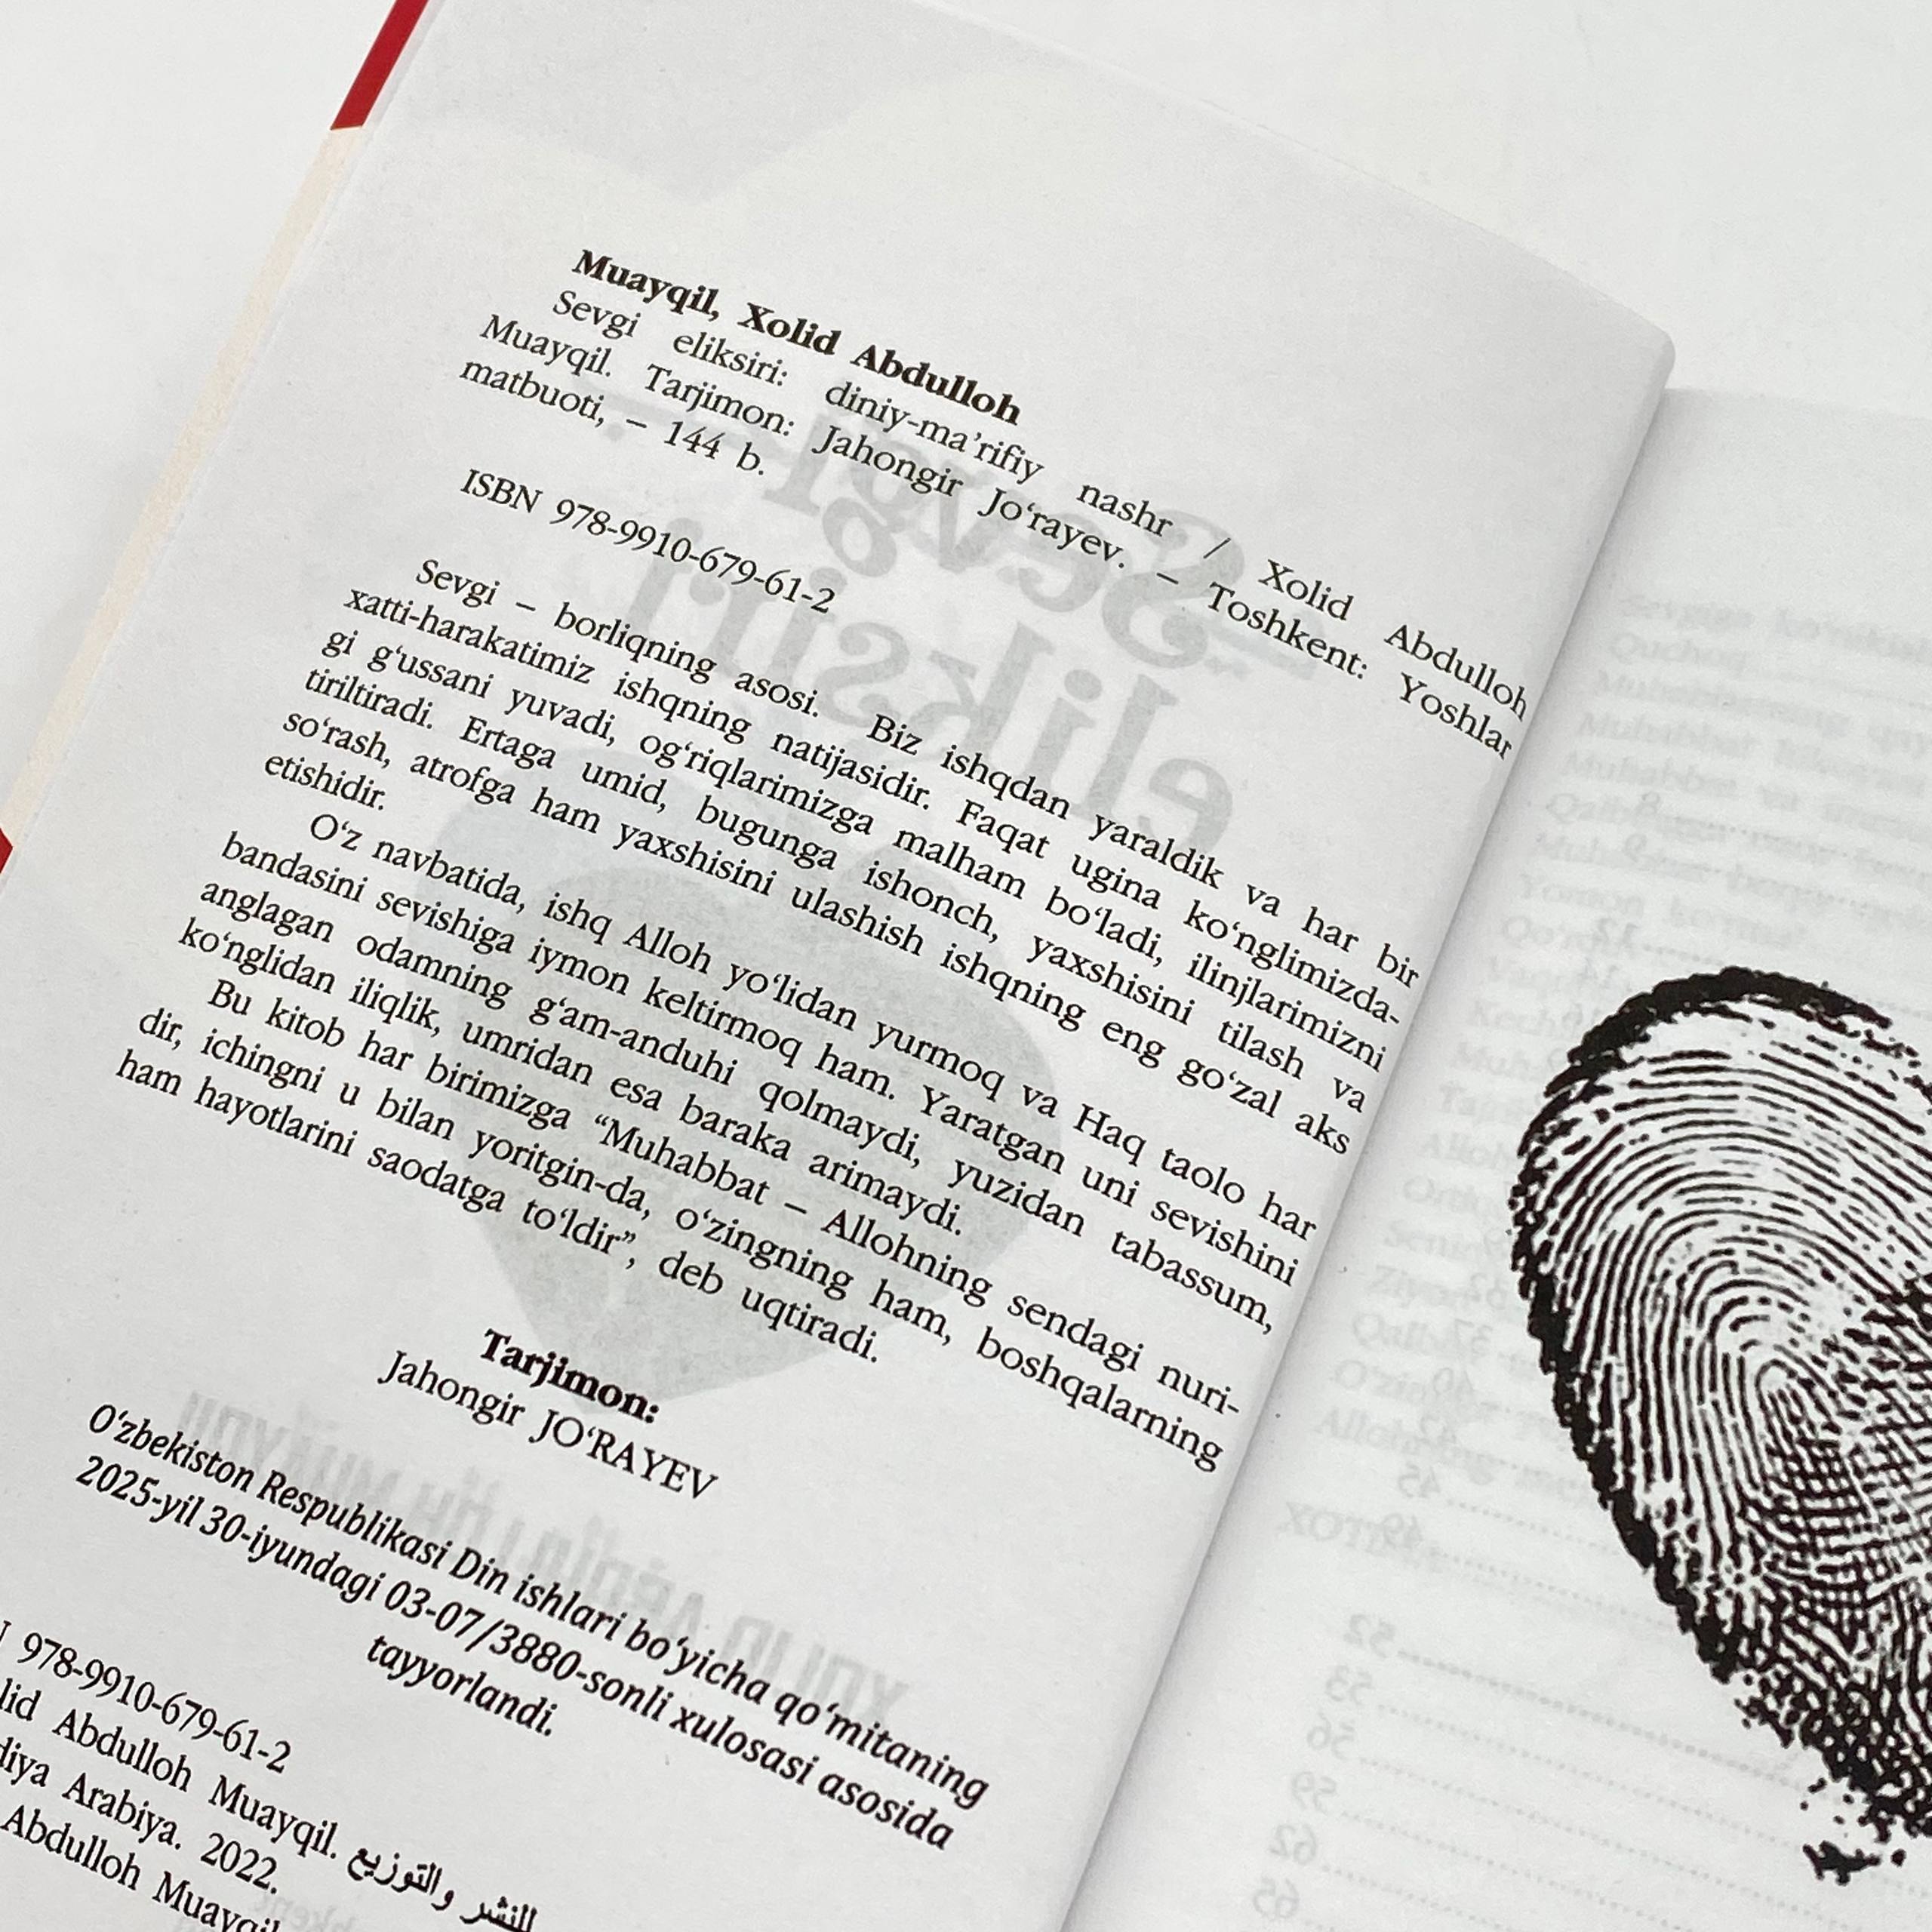 Muayqil, Xolid Abdulloh
Sevgi eliksiri: diniy-ma’rifiy nashr / Xolid Abdulloh
Muayqil. Tarjimon: Jahongir Jo‘rayev. – Toshkent: Yoshlar
matbuoti, – 144 b.
ISBN 978-9910-679-61-2
Sevgi – borliqning asosi. Biz ishqdan yaraldik va har bir
xatti-harakatimiz ishqning natijasidir. Faqat ugina ko‘nglimizda-
gi g‘ussani yuvadi, og‘riqlarimizga malham bo‘ladi, ilinjlarimizni
tiriltiradi. Ertaga umid, bugunga ishonch, yaxshisini tilash va
so‘rash, atrofga ham yaxshisini ulashish ishqning eng go‘zal aks
etishidir.
O‘z navbatida, ishq Alloh yo‘lidan yurmoq va Haq taolo har
bandasini sevishiga iymon keltirmoq ham. Yaratgan uni sevishini
anglagan odamning g‘am-anduhi qolmaydi, yuzidan tabassum,
ko‘nglidan iliqlik, umridan esa baraka arimaydi.
Bu kitob har birimizga “Muhabbat – Allohning sendagi nuri-
dir, ichingni u bilan yoritgin-da, o‘zingning ham, boshqalarning
ham hayotlarini saodatga to‘ldir”, deb uqtiradi.
Tarjimon:
Jahongir JO‘RAYEV
O‘zbekiston Respublikasi Din ishlari bo‘yicha qo‘mitaning
2025-yil 30-iyundagi 03-07/3880-sonli xulosasi asosida
tayyorlandi.
978-9910-679-61-2
Abdulloh Muayqil. للنشر والتوزيع
Arabiya. 2022.
Abdulloh Muayqil